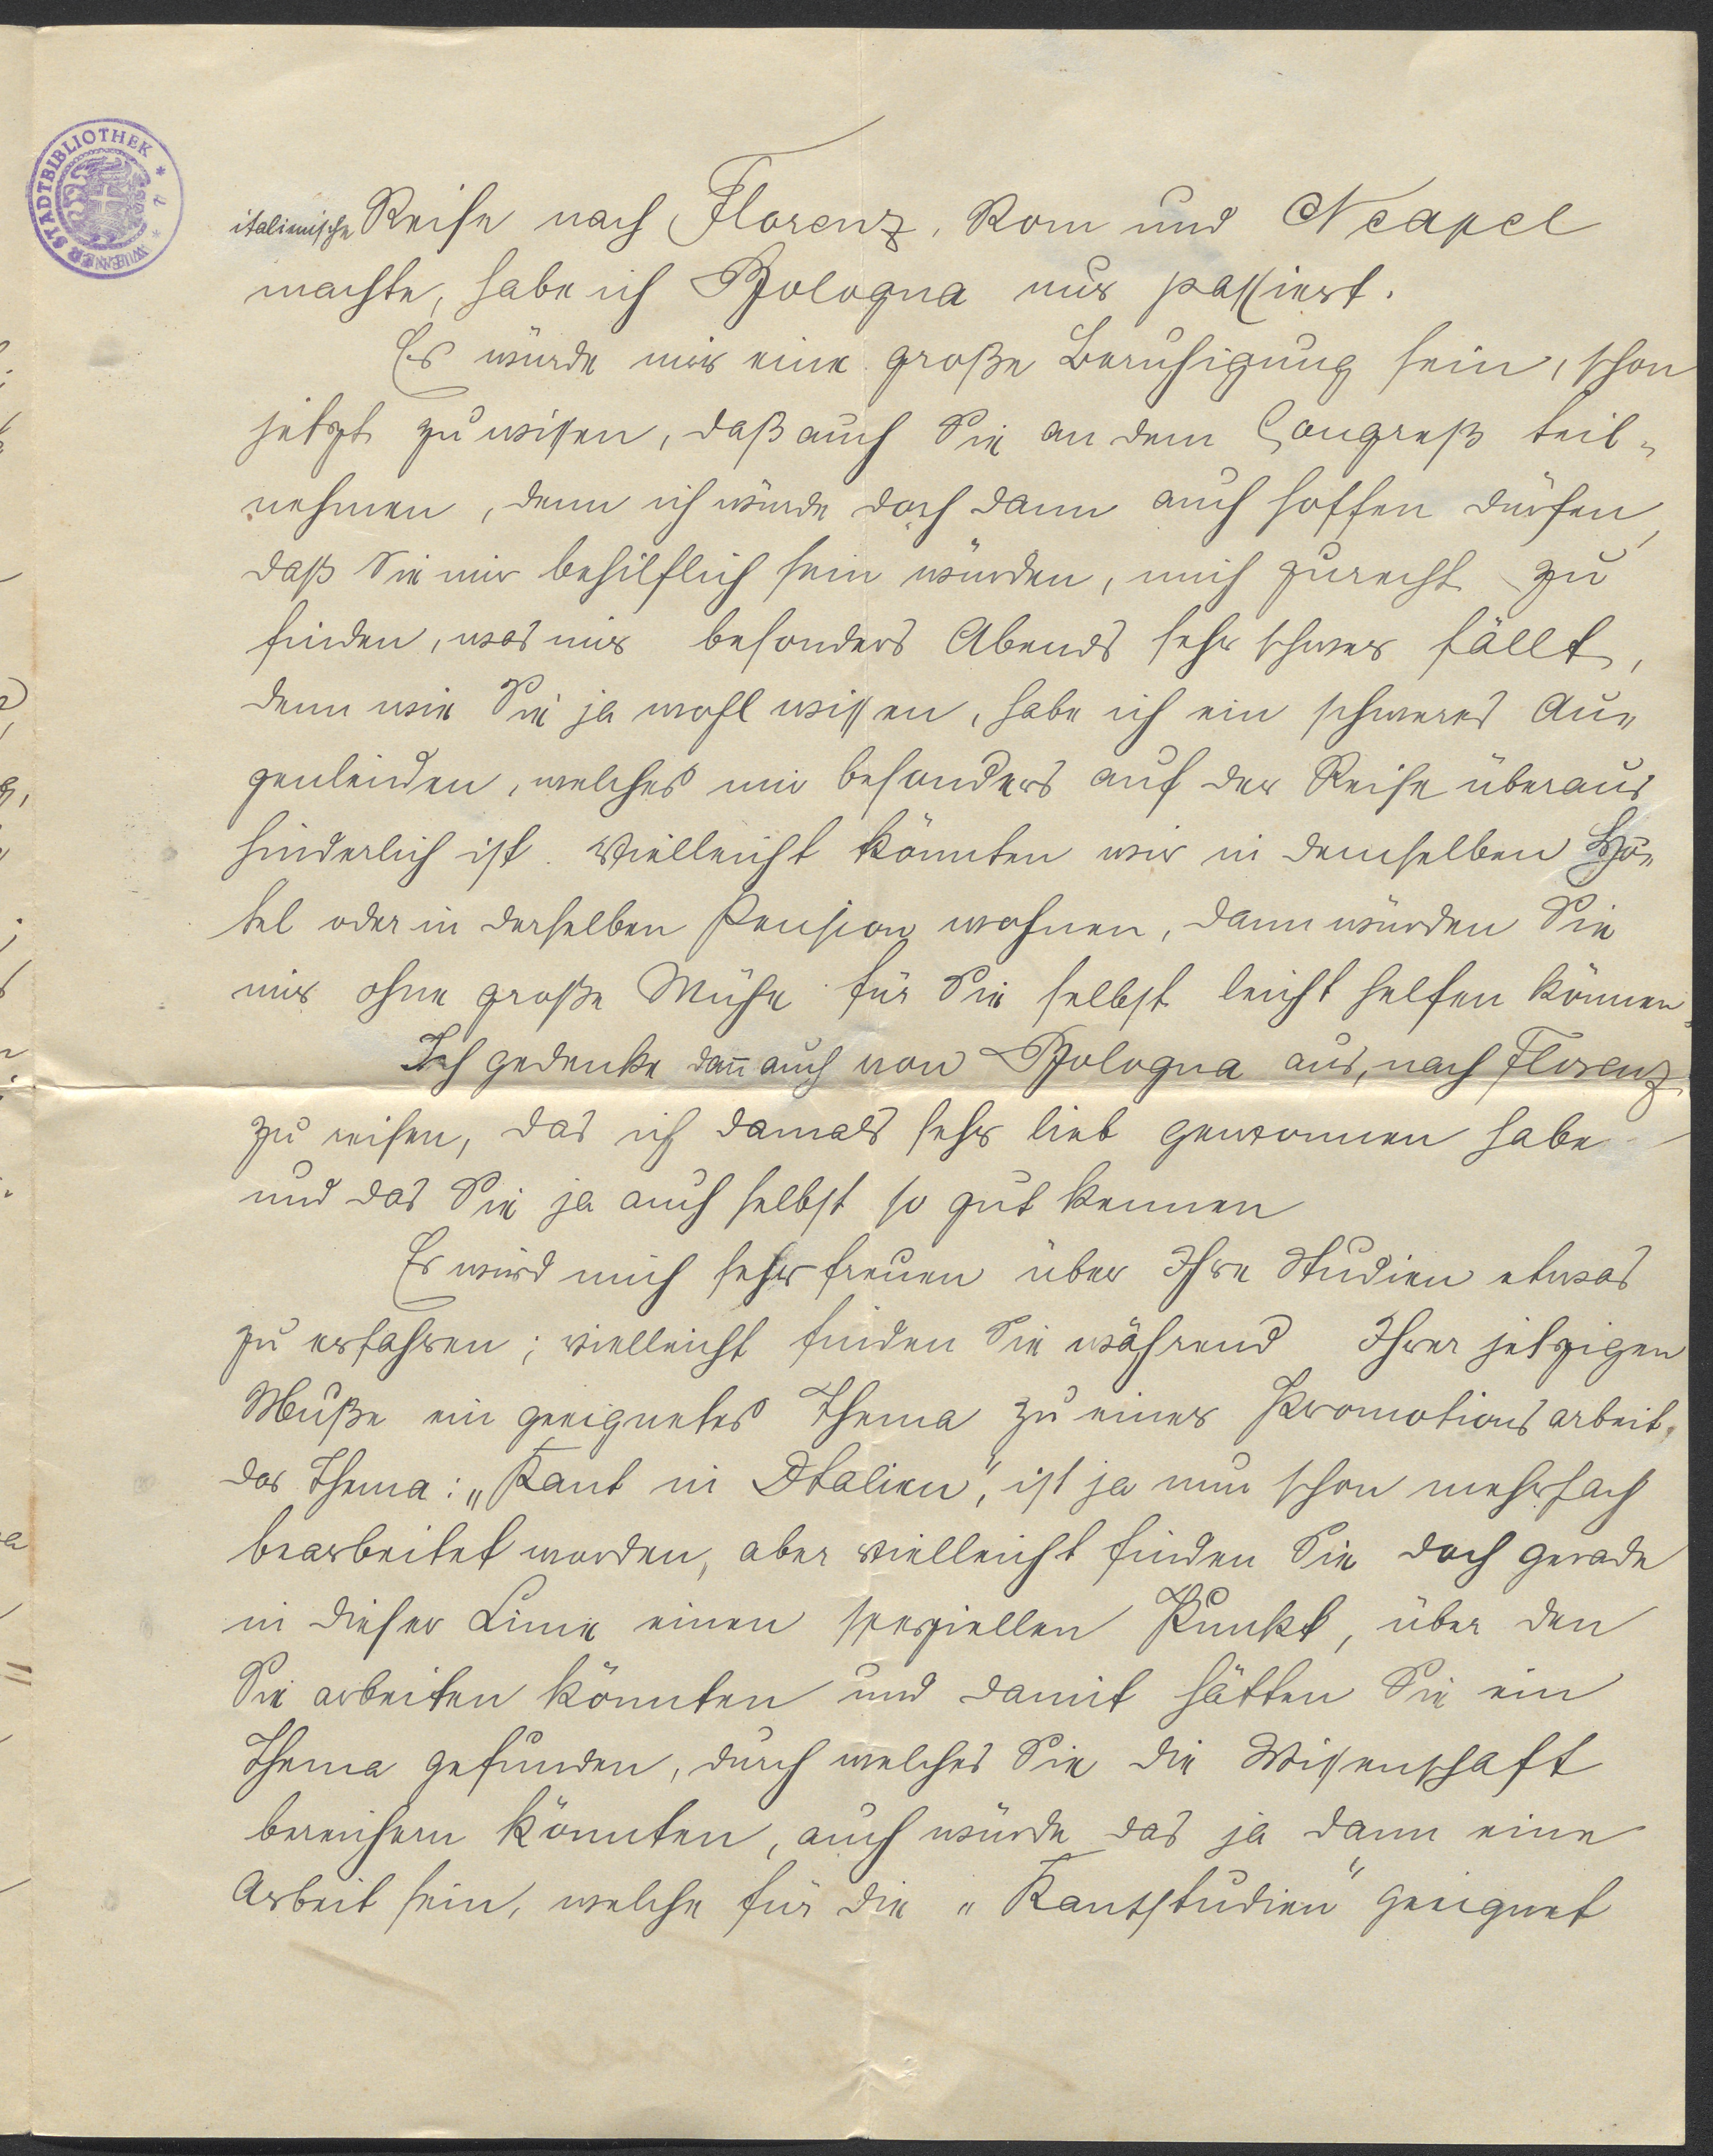 WIENER STADTBIBLIOTHEK
italienische Reise nach Florenz, Rom und Neapel
machte, habe ich Bologna nur passiert.
Es würde mir eine große Beruhigung sein, schon
jetzt zu wissen, daß auch Sie an dem Congreß teil-
nehmen, denn ich würde doch dann auch hoffen dürfen,
daß Sie mir behilflich sein würden, mich zurecht zu
finden, was mir besonders Abends sehr schwer fällt,
denn wie Sie ja wohl wissen, habe ich ein schweres Au-
genleiden, welches mir besonders auf der Reise überaus
hinderlich ist. Vielleicht könnten wir in demselben Hô-
tel oder in derselben Pension wohnen, dann würden Sie
mir ohne große Mühe für Sie selbst leicht helfen können.
Ich gedenke dañ auch von Bologna aus, nach Florenz
zu reisen, das ich damals sehr lieb gewonnen habe
und das Sie ja auch selbst so gut kennen
Es wird mich sehr freuen über Ihre Studien etwas
zu erfahren; vielleicht finden Sie während Ihrer jetzigen
Muße ein geeignetes Thema zu einer Promotionsarbeit.
das Thema: „Kant in Italien“, ist ja nun schon mehrfach
bearbeitet worden, aber vielleicht finden Sie doch gerade
in dieser Linie einen speziellen Punkt, über den
Sie arbeiten könnten und damit hätten Sie ein
Thema gefunden, durch welches Sie die Wissenschaft
bereichern könnten, auch würde das ja dann eine
Arbeit sein, welche für die „Kantstudien“ geeignet